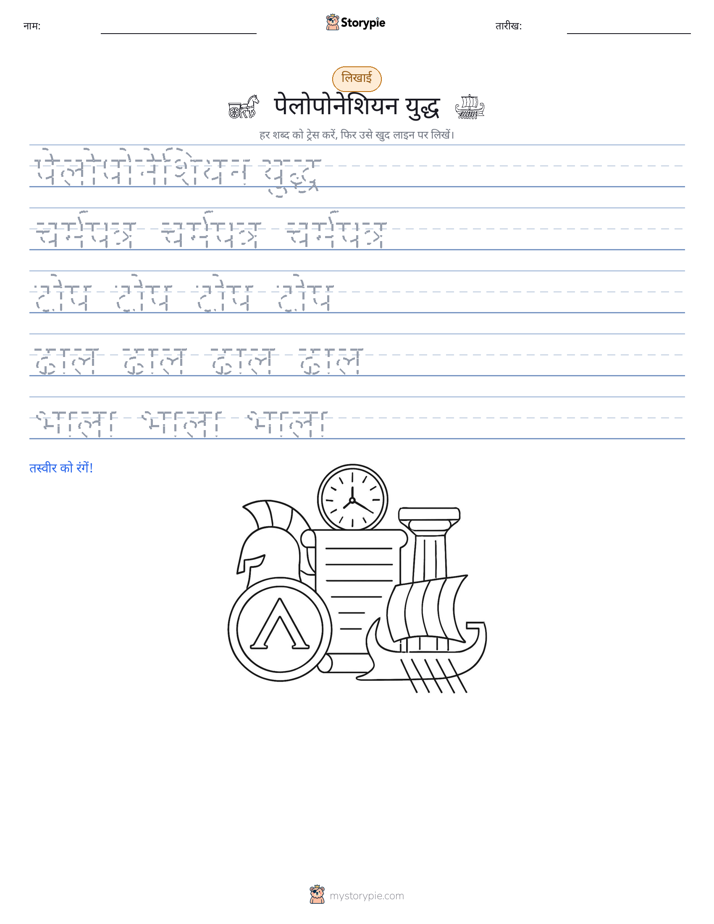 नाम:
Storypie
तारीख:
लिखाई
पेलोपोनेशियन युद्ध
हर शब्द को ट्रेस करें, फिर उसे खुद लाइन पर लिखें।
पेलोपोनेशियन युद्ध
चर्मपत्र चर्मपत्र चर्मपत्र
टोप टोप टोप टोप
ढाल ढाल ढाल ढाल
भाला भाला भाला
तस्वीर को रंगें!
Λ
mystorypie.com